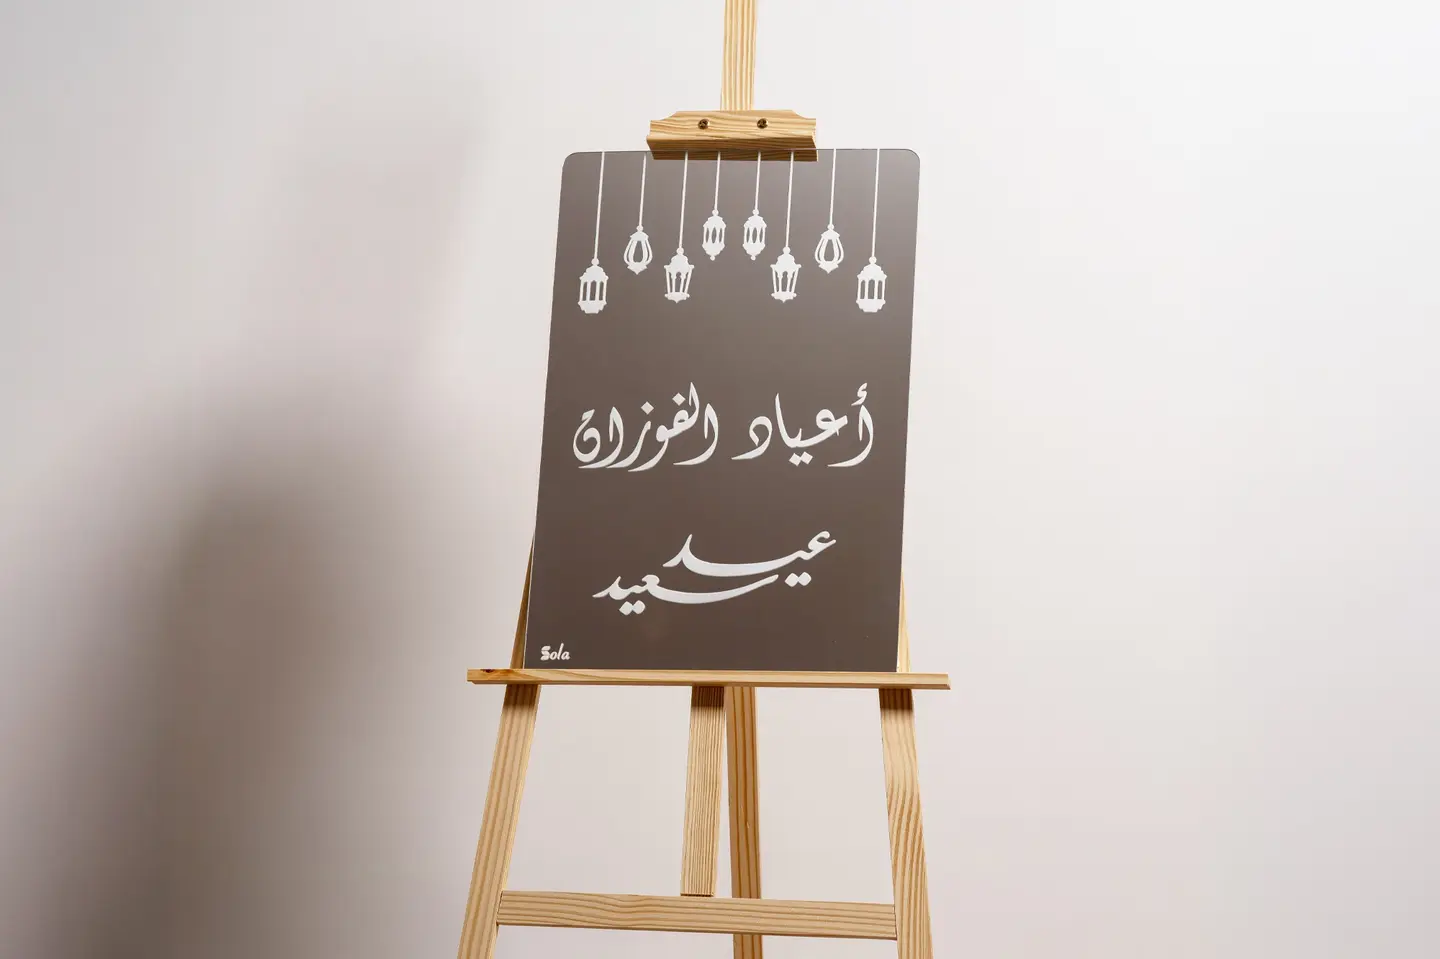 أعياد الفوزان
عيد
سعيد
Sola